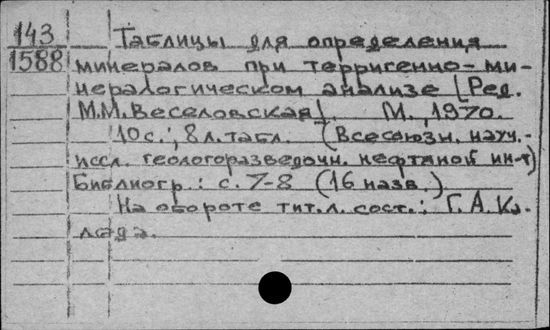 143 Таблицы для определения
1588 минералов при терригенно-ми-
нералогическом анализе [Ред.
М.М.Веселовская]. М., 1970.
10 с.; 8 л. табл. (Всесоюзн. науч.-
иссл. геологоразведочн. нефтяной ин-т)
Библиогр.: с. 7-8 (16 назв.)
На обороте тит.л. сост.: Г.А.Ка-
лада.